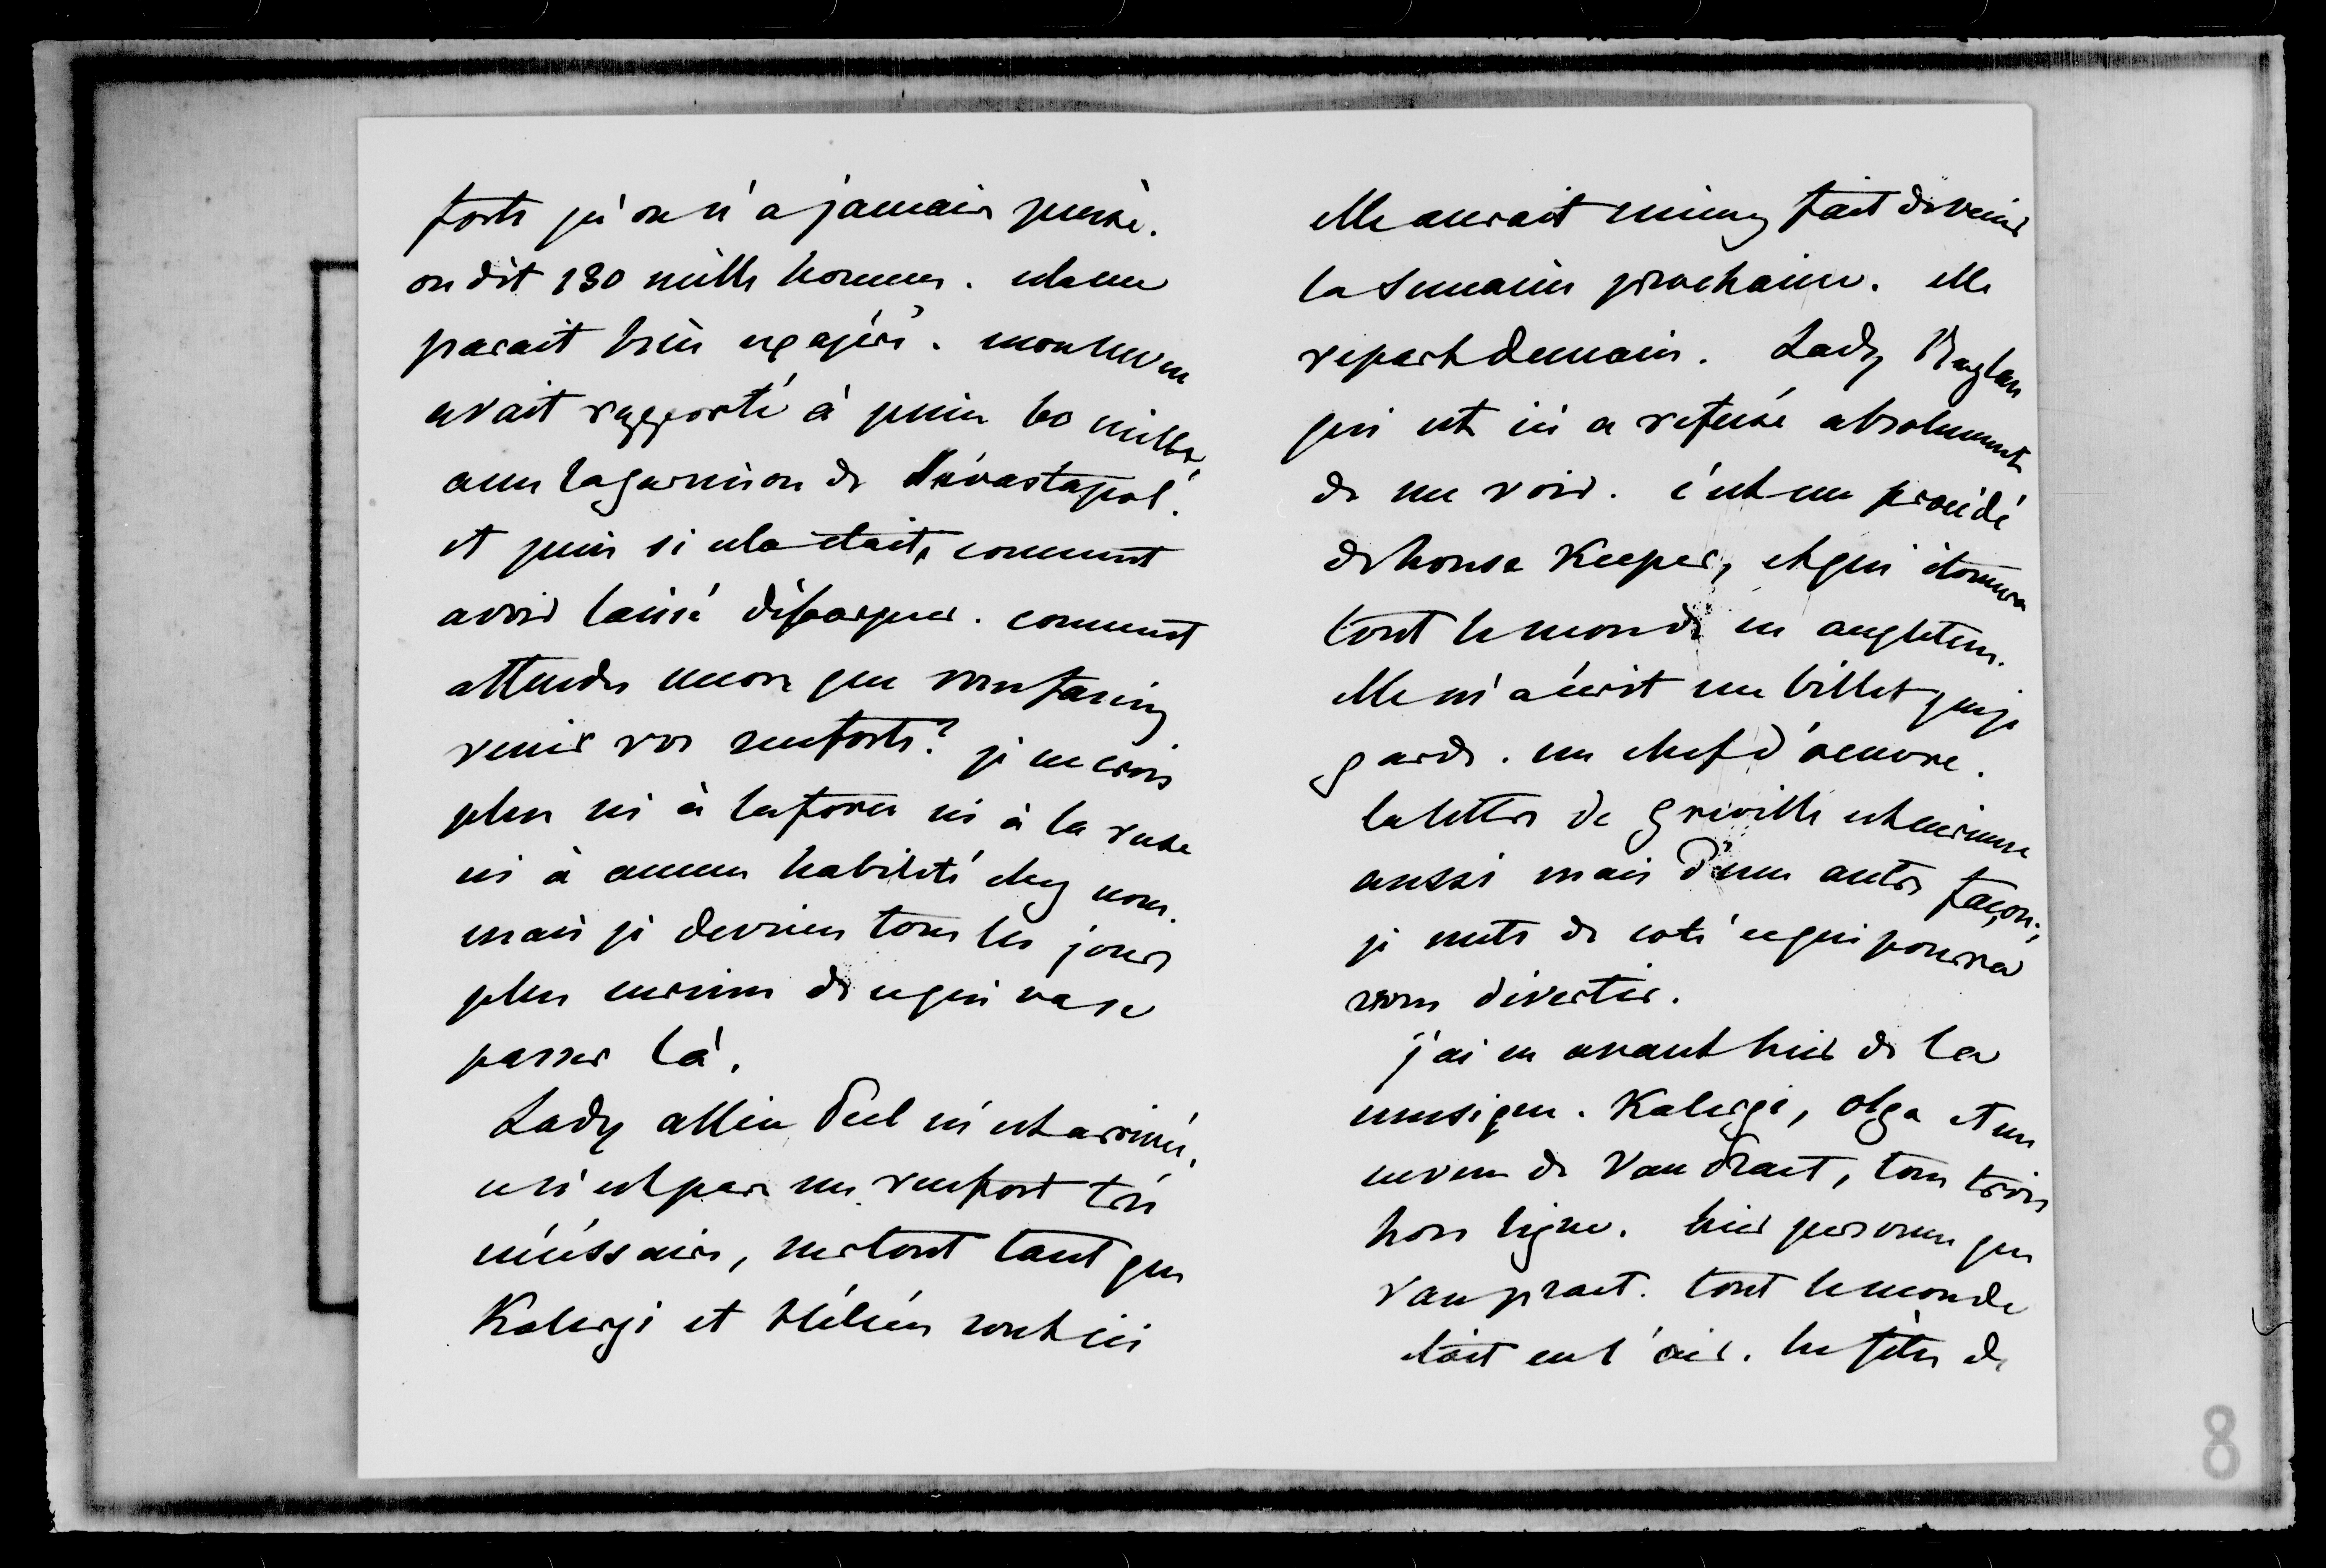 forts qu'on n'a jamais pensé.
on dit 130 mille hommes. cela me
parait bien exagéré. mon neveu
avait rapporté à peine 60 mille,
avec la garnison de Sévastopol.
et puis si cela était, comment
avoir laissé débarquer. comment
attendre encore que vous fassiez
venir vos renforts? je ne crois
plus ni à la force ni à la ruse
ni à aucune habileté chez nous.
mais je deviens tous les jours
plus curieuse de ce qui va se
passer là.
Lady allice Peel m'est arrivée,
ce n'est pas un renfort très
nécéssaire, surtout tant que
Kalergi et Hélène sont ici
elle aurait mieux fait de venir
la semaine prochaine. elle
repart demain. Lady Raglan
qui est ici a refusé absolument
de me voir. c'est un procédé
de house Keeper, et qui étonnera
tout le monde en angleterre.
elle m'a écrit un billet que je
garde. un chef d'oeuvre.
la lettre de Greville est curieuse
aussi mais d'une autre façon;
je mets de coté ce qui pourra
vous divertir.
j'ai eu avant hier de la
musique. Kalergi, olga et un
neveu de Van Praet, tous trois
hors ligne. hier personne que
Van praet. tout le monde
était en l'air. les fêtes de